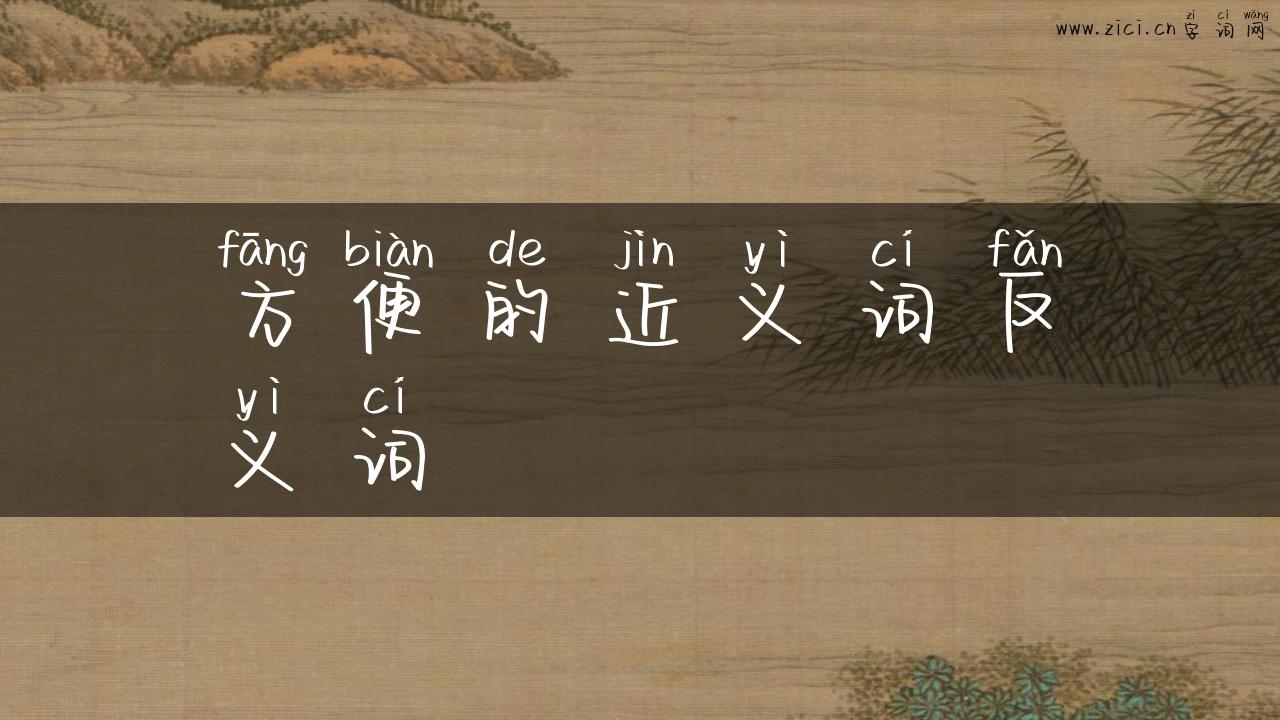 zì cí wǎng
www.zici.cn 字 词 网
fāng biàn de jìn yì cí fǎn
方 便 的 近 义 词 反
yì cí
义 词